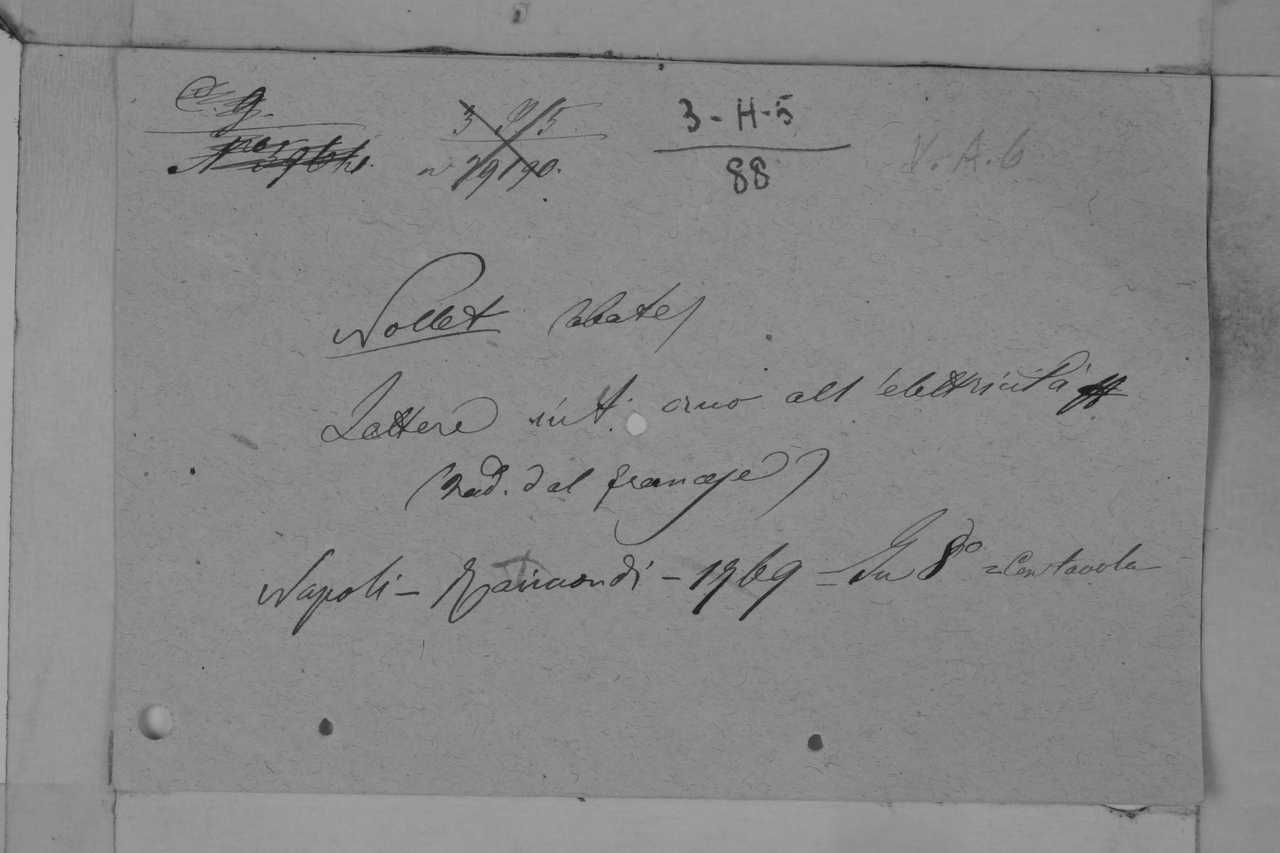 C. g.
3 - H - 5
88
V. A. 6
Nollet (abate)
Lettere int. orno all'elettricità
(Trad. dal francese)
Napoli - Raimondi - 1769 - In 8° = Con tavola